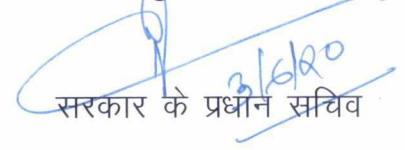 3/6/20
सरकार के प्रधान सचिव